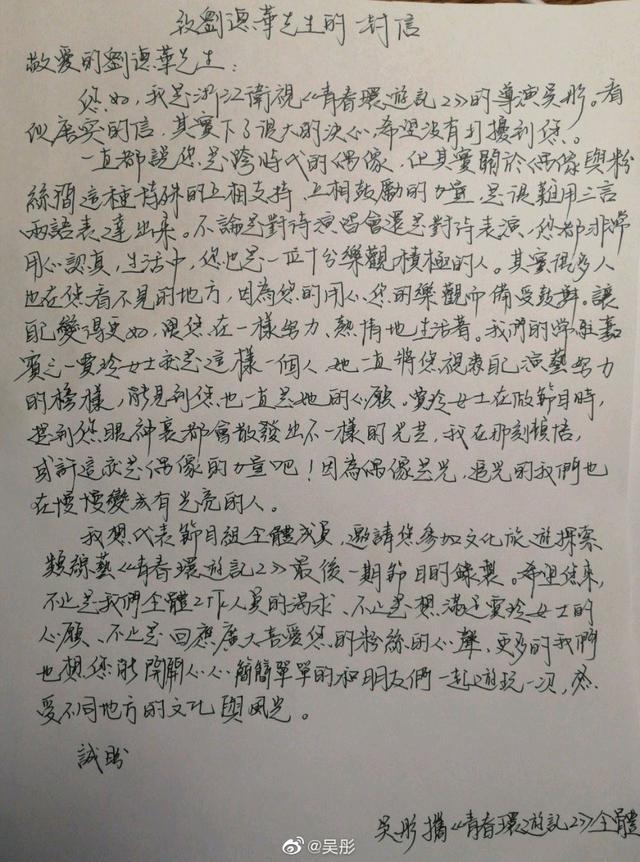 致劉德華先生的一封信
敬愛的劉德華先生：
您好，我是浙江衛視《青春環遊記2》的導演吳彤。看
似唐突的信，其實下了很大的決心，希望沒有打擾到您。
一直都說您是跨時代的偶像，但其實關於偶像與粉
絲間這種特殊的互相支持、互相鼓勵的力量，是很難用三言
兩語表達出來。不論是對待演唱會還是對待表演，您都非常
用心認真，生活中，您也是一位十分樂觀積極的人。其實很多人
也在您看不見的地方，因為您的用心、您的樂觀而備受鼓舞。讓
自己變得更好，跟您在一樣努力、熱情地生活著。我們的常駐嘉
賓之一賈玲女士就是這樣一個人，她一直將您視為自己演藝努力
的榜樣，能見到您也一直是她的心願。賈玲女士在做節目時，
提到您眼神裏都會散發出不一樣的光芒，我在那刻頓悟，
或許這就是偶像的力量吧！因為偶像是光，追光的我們也
在慢慢變成有光亮的人。
我想代表節目組全體成員，邀請您參加文化旅遊探索
類綜藝《青春環遊記2》最後一期節目的錄製。希望您來，
不止是我們全體工作人員的渴求、不止是想滿足賈玲女士的
心願、不止是回應廣大喜愛您的粉絲的心聲，更多的我們
也想您能開開心心、簡簡單單的和朋友們一起遊玩一次，感
受不同地方的文化與風光。
誠盼
吳彤攜《青春環遊記2》全體
@吴彤